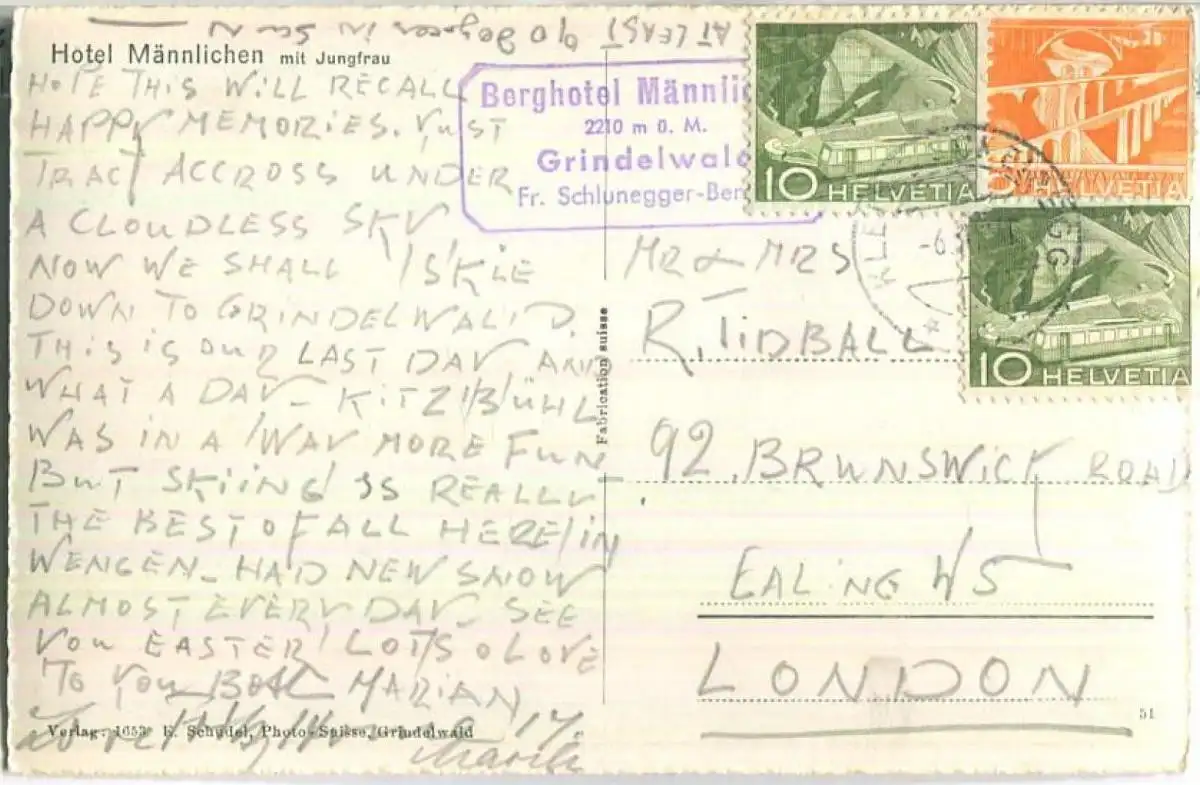 AT LEAST 90 degrees in Sun
Hotel Männlichen mit Jungfrau
HOPE THIS WILL RECALL
HAPPY MEMORIES. JUST
TRACT ACCROSS UNDER
A CLOUDLESS SKY
NOW WE SHALL SKIE
DOWN TO GRINDELWALD.
THIS IS OUR LAST DAY AND
WHAT A DAY - KITZBÜHL
WAS IN A WAY MORE FUN
BUT SKIING IS REALLY
THE BEST OF ALL HERE IN
WENGEN - HAD NEW SNOW
ALMOST EVERY DAY - SEE
YOU EASTER! LOTS O LOVE
TO YOU BOTH MARIAN
Verlag: 1653 E. Schudel, Photo-Suisse, Grindelwald
Berghotel Männlic
2210 m ü. M.
Grindelwald
Fr. Schlunegger-Ber
10 HELVETIA
HELVETIA
10 HELVETIA
Fabrication suisse
MR & MRS
R. TIDBALL
92. BRUNSWICK ROAD
EALING W5
LONDON
51